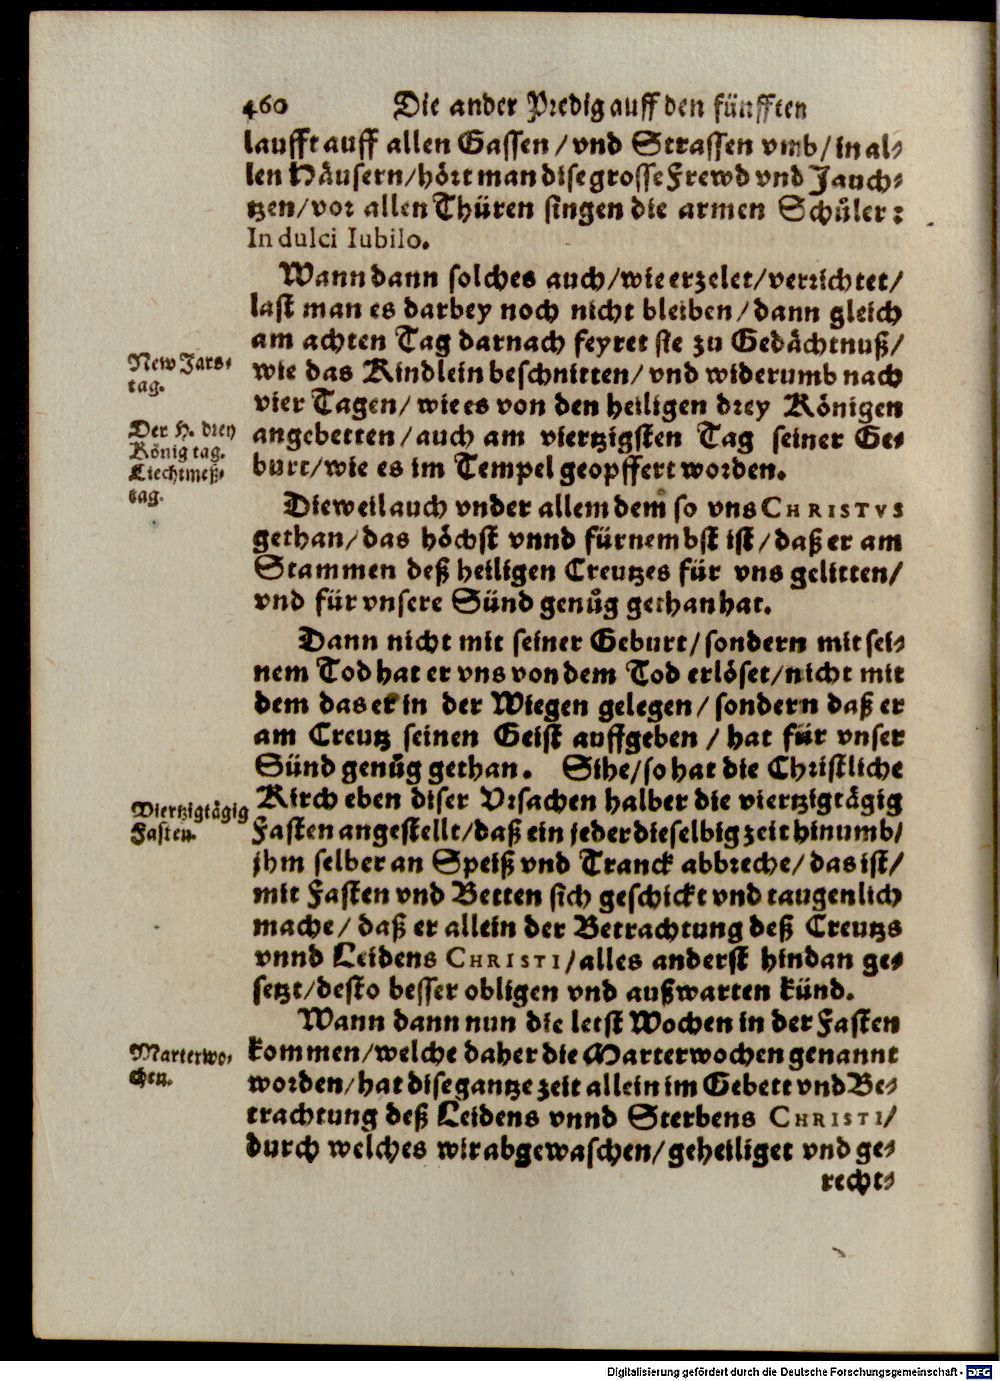 460 Die ander Predig auff den fünfften
laufft auff allen Gassen / vnd Strassen vmb / in al-
len Häusern / hört man dise grosse Frewd vnd Jauch-
tzen / vor allen Thüren singen die armen Schůler:
In dulci Iubilo.
Wann dann solches auch / wie erzelet / verrichtet /
last man es darbey noch nicht bleiben / dann gleich
am achten Tag darnach feyret sie zu Gedächtnuß /
New Jars-
tag.
wie das Kindlein beschnitten / vnd widerumb nach
vier Tagen / wie es von den heiligen drey Königen
Der H. drey
König tag.
Liechtmeß-
tag.
angebetten / auch am viertzigsten Tag seiner Ge-
burt / wie es im Tempel geopffert worden.
Dieweil auch vnder allem dem so vns CHRISTVS
gethan / das höchst vnnd fürnembst ist / daß er am
Stammen deß heiligen Creutzes für vns gelitten /
vnd für vnsere Sünd genůg gethan hat.
Dann nicht mit seiner Geburt / sondern mit sei-
nem Tod hat er vns von dem Tod erlöset / nicht mit
dem das er in der Wiegen gelegen / sondern daß er
am Creutz seinen Geist auffgeben / hat für vnser
Sünd genůg gethan. Sihe / so hat die Christliche
Viertzigtägig
Fasten.
Kirch eben diser Vrsachen halber die viertzigtägig
Fasten angestellt / daß ein jeder dieselbig zeit hinumb /
jhm selber an Speiß vnd Tranck abbreche / das ist /
mit Fasten vnd Betten sich geschickt vnd taugenlich
mache / daß er allein der Betrachtung deß Creutzs
vnnd Leidens CHRISTI / alles anderst hindan ge-
setzt / desto besser obligen vnd außwarten künd.
Wann dann nun die letst Wochen in der Fasten
Marterwo-
chen.
kommen / welche daher die Marterwochen genannt
worden / hat dise gantze zeit allein im Gebett vnd Be-
trachtung deß Leidens vnnd Sterbens CHRISTI /
durch welches wir abgewaschen / geheiliget vnd ge-
recht-
Digitalisierung gefördert durch die Deutsche Forschungsgemeinschaft - DFG